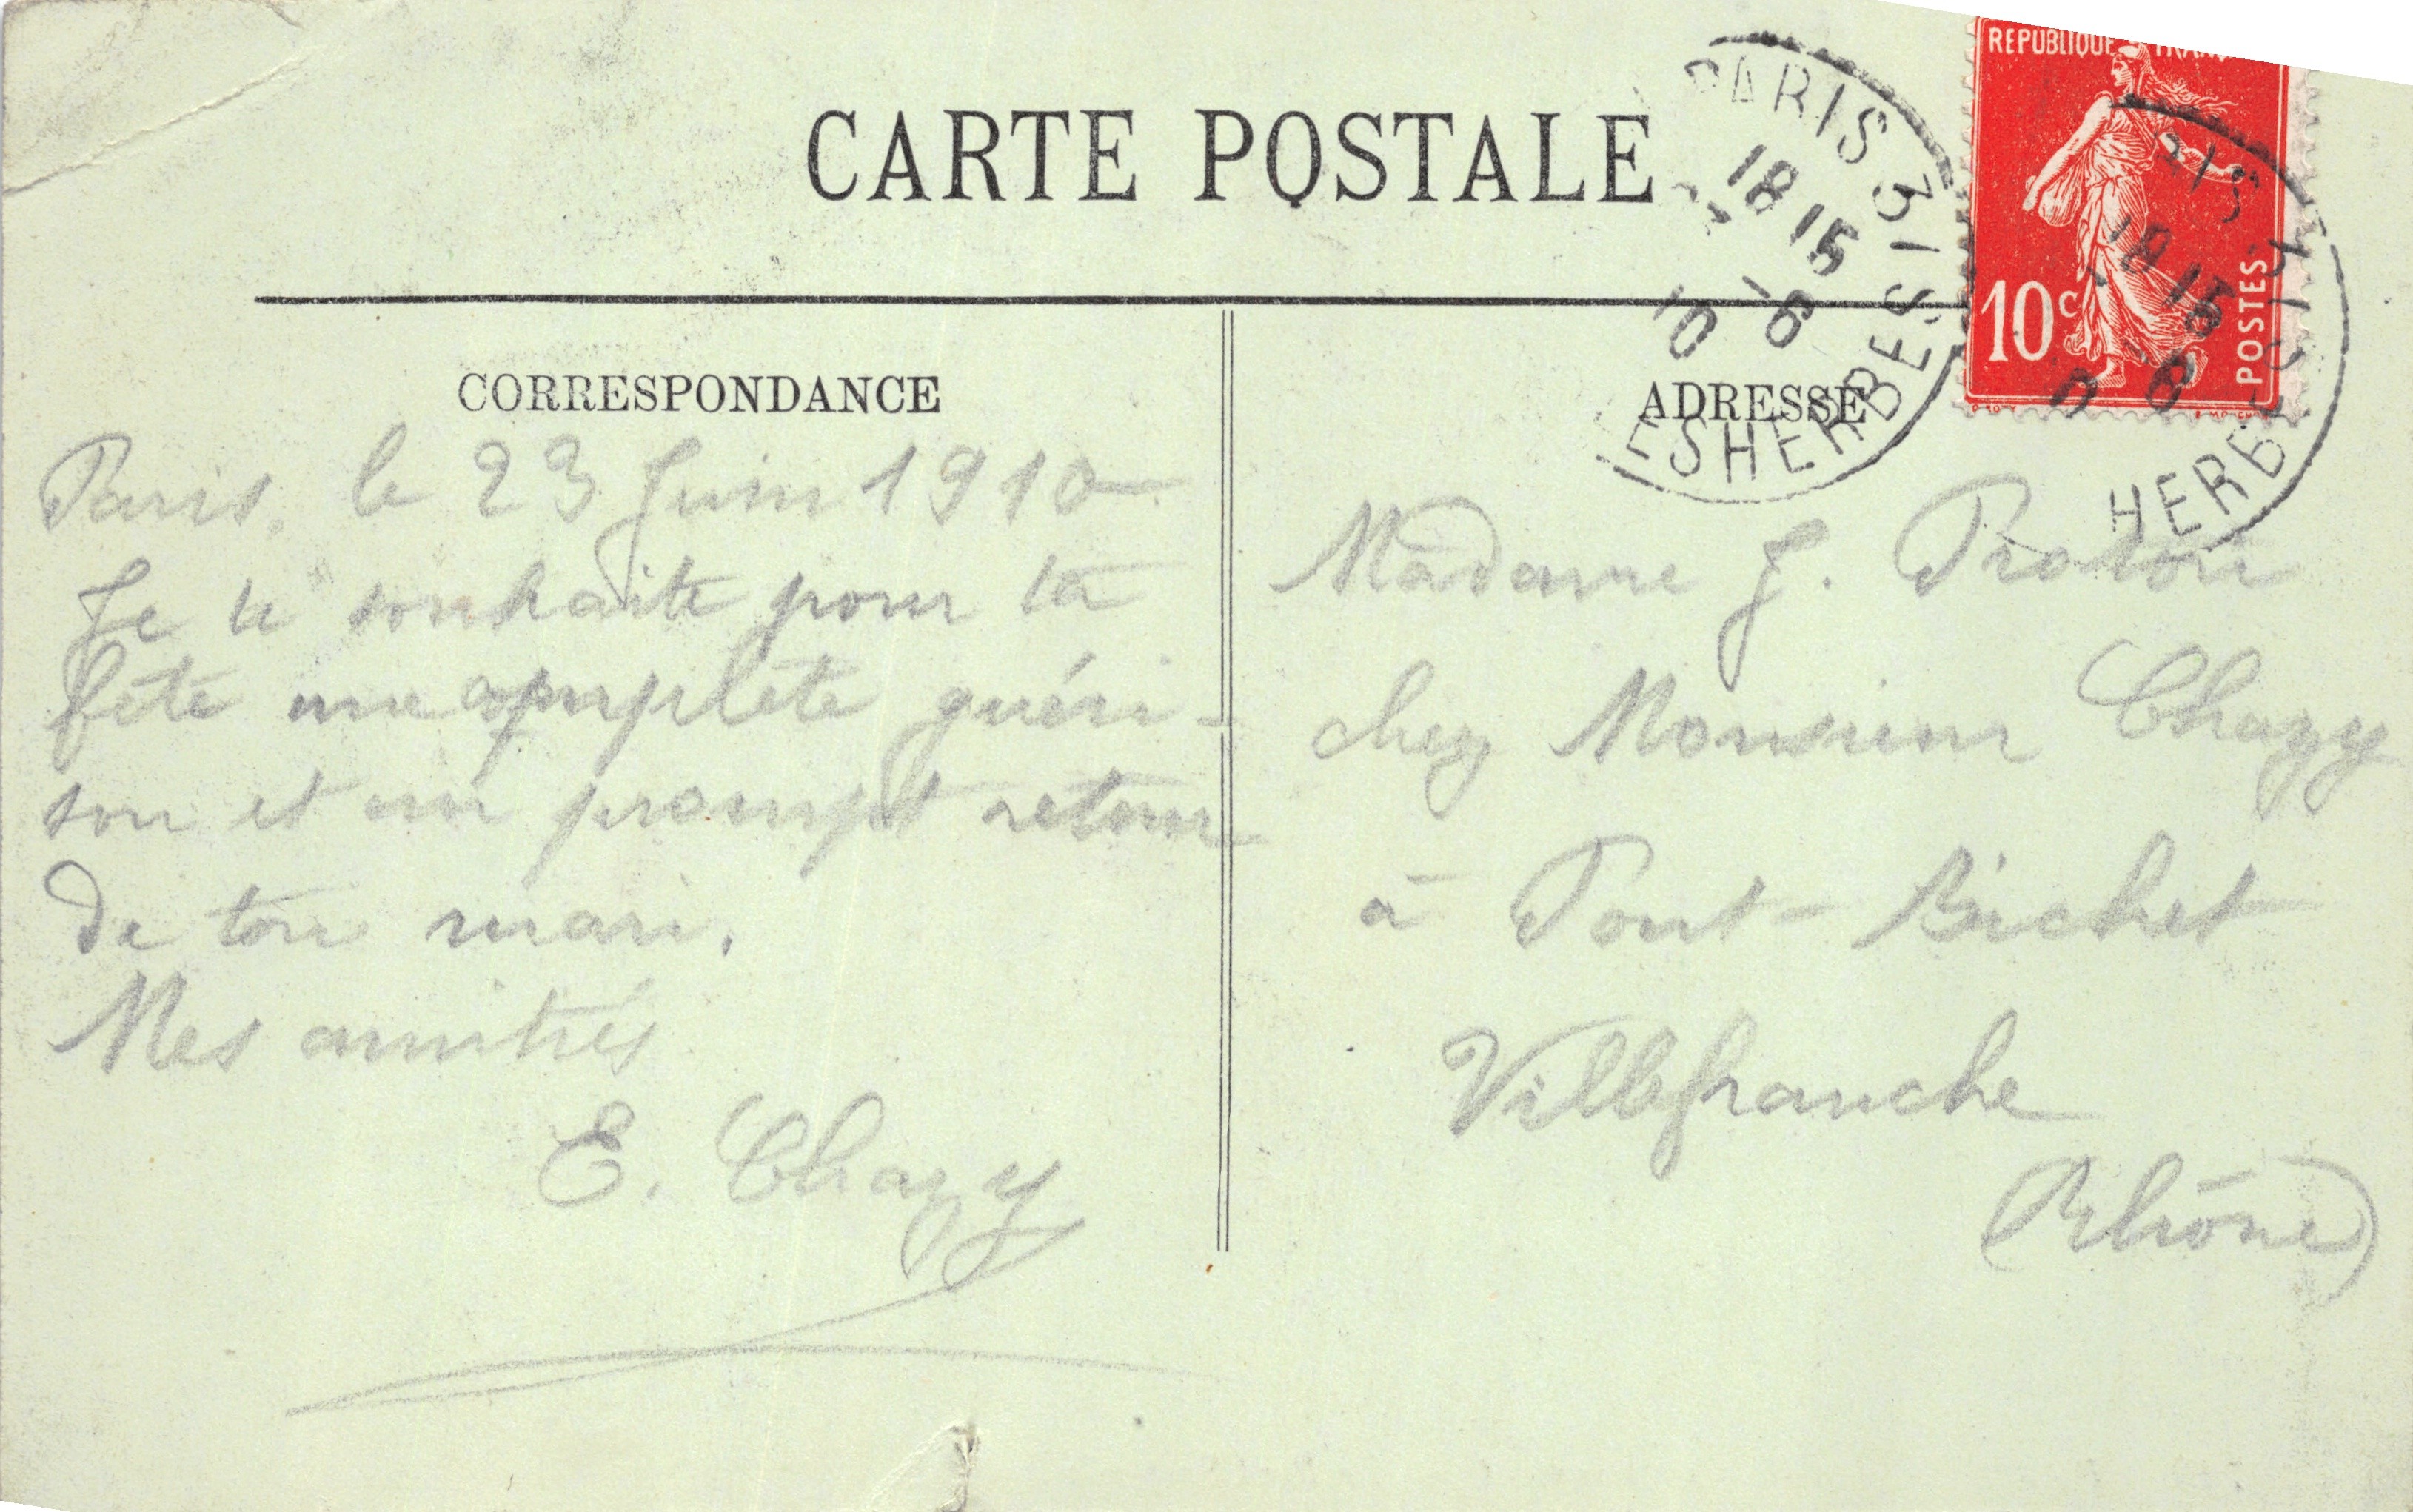 CARTE POSTALE
CORRESPONDANCE
Paris, le 23 Juin 1910
Je te souhaite pour ta
fête une complète guéri-
son et un prompt retour
de ton mari.
Mes amitiés
E. Chazy
REPUBLIQUE
10c
POSTES
PARIS 31
18 15
6
10
ESHERBES
RIS
18 15
6
HERBE
ADRESSE
Madame J. Proton
chez Monsieur Chazy
à Pont-Bichet
Villefranche
(Rhône)